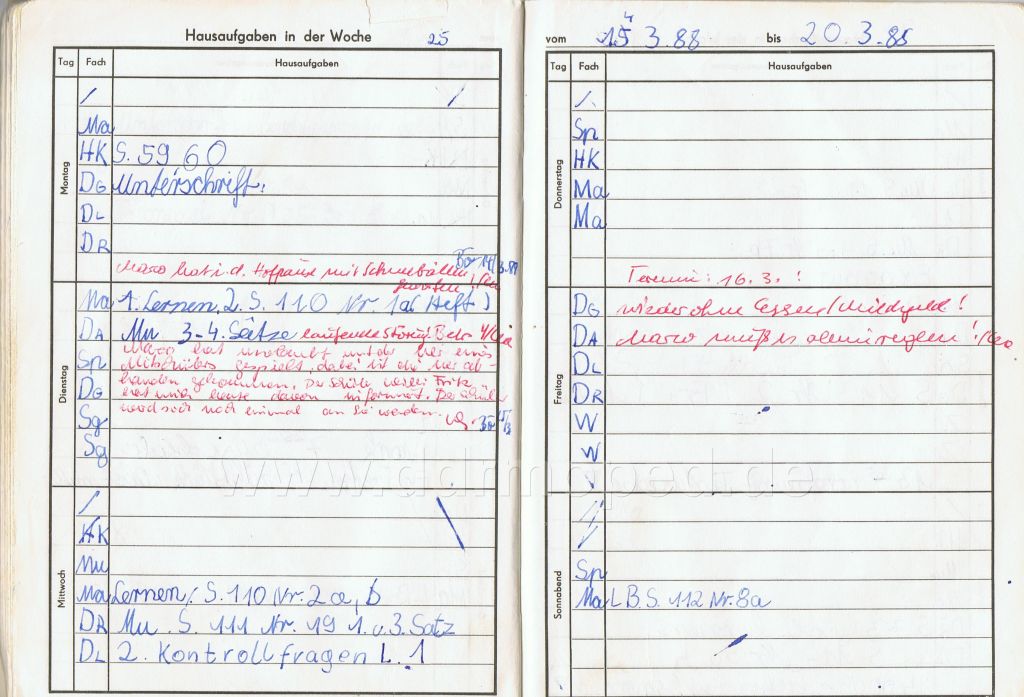 Hausaufgaben in der Woche 25
Tag Fach Hausaufgaben
Montag
/
Ma
HK S. 59 60
DG Unterschrift:
DL
DR
Marco hat i. d. Hofpause mit Schneebällen
geworfen!
Dienstag
Ma 1. Lernen, 2. S. 110 Nr. 1a Heft)
DA Mu 3-4. Sätze laufende Störg!
Marco hat unerlaubt mit der Uhr eines
Sp Mitschülers gespielt, dabei ist die Uhr ab-
DG handen gekommen. Der Schüler Fritz
hat mich heute davon informiert. Der Schüler
Sg wird sich noch einmal an Sie wenden.
Sg
Mittwoch
/
HK
Mu
Ma Lernen, S. 110 Nr. 2a, b
DR Mu. S. 111 Nr. 19 1. u. 3. Satz
DL 2. Kontrollfragen L. 1
vom 14 3.88 bis 20.3.88
Tag Fach Hausaufgaben
Donnerstag
/
Sp
HK
Ma
Ma
Termin: 16.3.!
Freitag
DG wieder ohne Essen/Milchgeld!
DA Marco muß es allein regeln!
DL
DR
W
W
Sonnabend
Sp
Ma LB. S. 112 Nr. 8a
www.ddrmoped.de